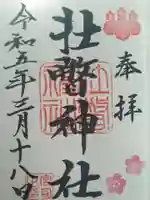 奉拝
壮瞥神社
令和五年三月十八日